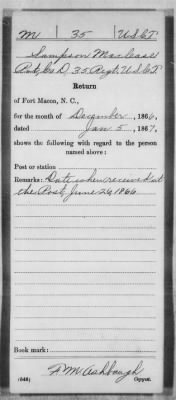 M | 35 | U.S.C.T.
Sampson Macisaac
Pvt, Co. D, 35 Regt, U.S.C.T.
Return
of Fort Macon, N. C.,
for the month of December, 1866,
dated Jan 5, 1867,
shows the following with regard to the person
named above:
Post or station
Remarks: Date when received at
the Post, June 26, 1866
Book mark:
F. M. Ashbaugh
(546) Copyist.